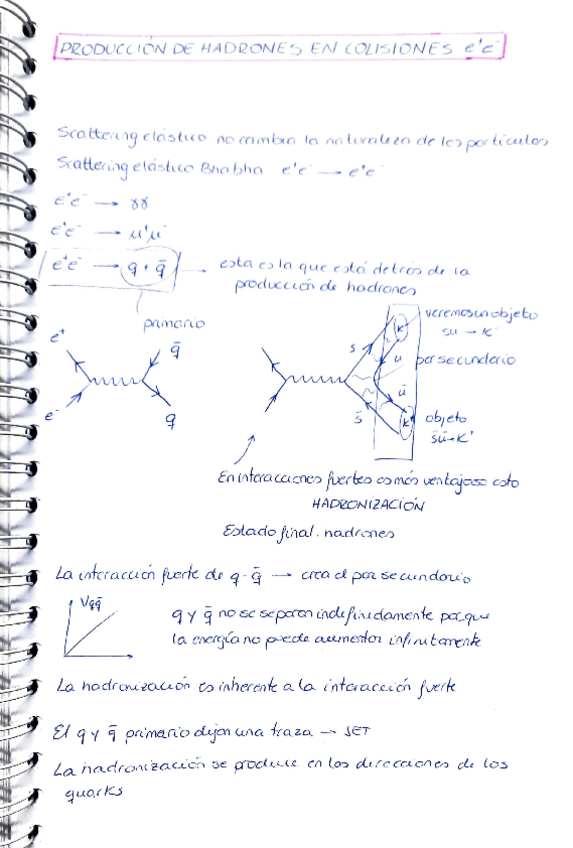 PRODUCCIÓN DE HADRONES EN COLISIONES e⁺e⁻
Scattering elástico no cambia la naturaleza de las partículas
Scattering elástico Bhabha e⁺e⁻ → e⁺e⁻
e⁺e⁻ → γγ
e⁺e⁻ → μ⁺μ⁻
e⁺e⁻ → q + q̄ → esta es la que está detrás de la
producción de hadrones
primario
e⁺
e⁻
q̄
q
s
s̄
u
ū
K
K
veremos un objeto
par secundario
objeto
En interacciones fuertes es más ventajoso esto
HADRONIZACIÓN
Estado final: hadrones
La interacción fuerte de q-q̄ → crea el par secundario
Vqq̄
q y q̄ no se separan indefinidamente porque
la energía no puede aumentar infinitamente
La hadronización es inherente a la interacción fuerte
El q y q̄ primario dejan una traza → JET
La hadronización se produce en las direcciones de los
quarks